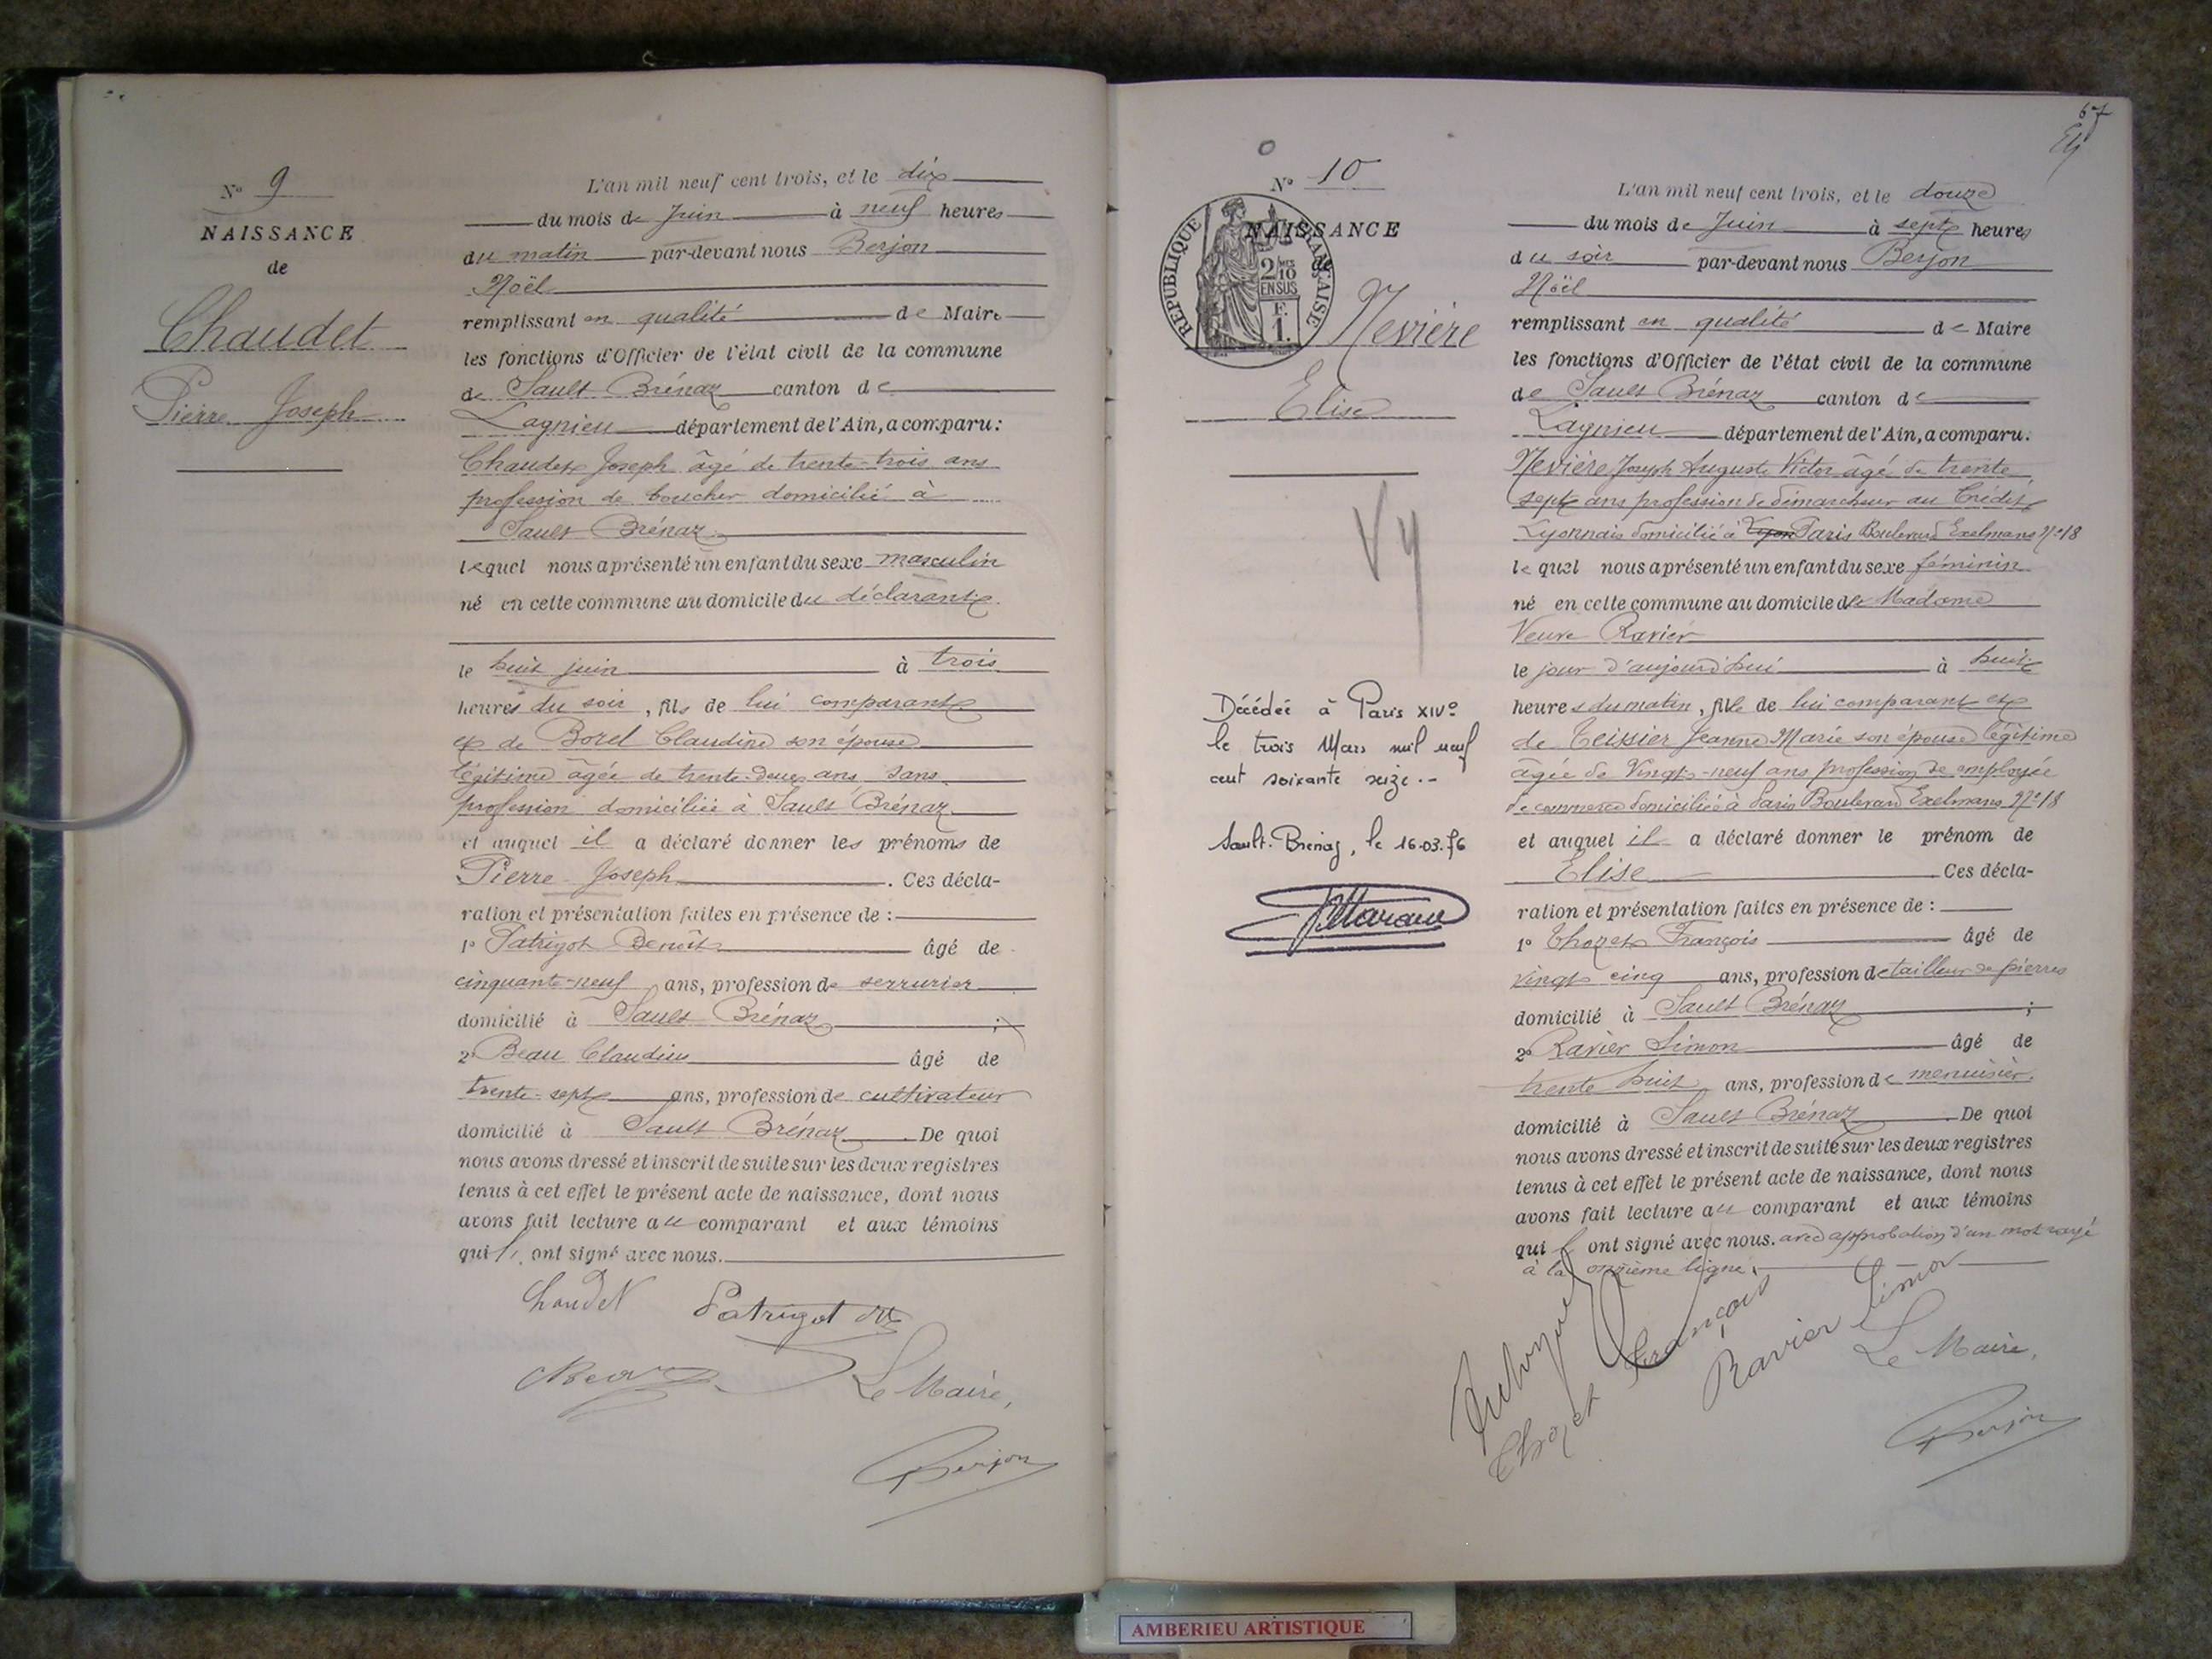 N° 9
NAISSANCE
de
Chaudet
Pierre Joseph
L'an mil neuf cent trois, et le dix
du mois de Juin à neuf heures
du matin par-devant nous Berjon
Noël
remplissant en qualité de Maire
les fonctions d'Officier de l'état civil de la commune
de Sault Brénaz canton de
Lagnieu département de l'Ain, a comparu:
Chaudet Joseph âgé de trente-trois ans
profession de boucher domicilié à
Sault Brénaz
lequel nous a présenté un enfant du sexe masculin
né en cette commune au domicile du déclarant
le huit juin à trois
heures du soir, fils de lui comparant
et de Borel Claudine son épouse
légitime âgée de trente-deux ans sans
profession domiciliée à Sault Brénaz
et auquel il a déclaré donner les prénoms de
Pierre Joseph. Ces décla-
ration et présentation faites en présence de :
1° Patrigot Benoît âgé de
cinquante-neuf ans, profession de serrurier
domicilié à Sault Brénaz ;
2° Beau Claudius âgé de
trente-sept ans, profession de cultivateur
domicilié à Sault Brénaz. De quoi
nous avons dressé et inscrit de suite sur les deux registres
tenus à cet effet le présent acte de naissance, dont nous
avons fait lecture au comparant et aux témoins
qui ont signé avec nous.
Chaudet Patrigot
CBeau Le Maire,
Berjon
67
N° 10
NAISSANCE
de
RÉPUBLIQUE FRANÇAISE
2/10 EN SUS
F. 1.
Nevière
Elise
Décédée à Paris XIVe
le trois Mars mil neuf
cent soixante seize.-
Sault-Brenaz, le 16.03.76
L'an mil neuf cent trois, et le douze
du mois de Juin à sept heures
du soir par-devant nous Berjon
Noël
remplissant en qualité de Maire
les fonctions d'Officier de l'état civil de la commune
de Sault Brénaz canton de
Lagnieu département de l'Ain, a comparu.
Nevière Joseph Auguste Victor âgé de trente
sept ans profession de démarcheur au Crédit
Lyonnais domicilié à Lyon Paris Boulevard Exelmans N° 18
lequel nous a présenté un enfant du sexe féminin
né en cette commune au domicile de Madame
Veuve Ravier
le jour d'aujourd'hui à huit
heures du matin, fille de lui comparant et
de Teissier Jeanne Marie son épouse légitime
âgée de Vingt-neuf ans profession de employée
de commerce domiciliée à Paris Boulevard Exelmans N° 18
et auquel il a déclaré donner le prénom de
Elise Ces décla-
ration et présentation faites en présence de :
1° Thozet François âgé de
vingt cinq ans, profession de tailleur de pierres
domicilié à Sault Brénaz ;
2° Ravier Simon âgé de
trente huit ans, profession de menuisier.
domicilié à Sault Brénaz. De quoi
nous avons dressé et inscrit de suite sur les deux registres
tenus à cet effet le présent acte de naissance, dont nous
avons fait lecture au comparant et aux témoins
qui ont signé avec nous. avec approbation d'un mot rayé
à la onzième ligne.
Thozet François Ravier Simon
Le Maire,
Berjon
AMBERIEU ARTISTIQUE